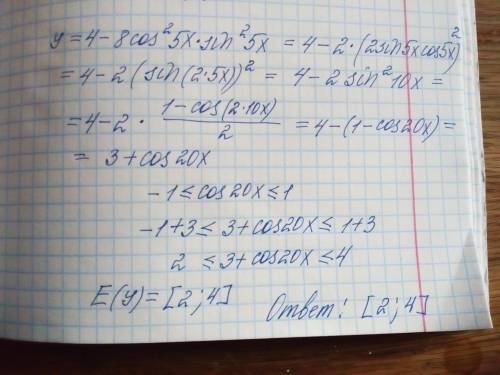 y = 4 - 8cos²5x·sin²5x = 4 - 2·(2sin5xcos5x)²
= 4 - 2(sin(2·5x))² = 4 - 2sin²10x =
= 4 - 2 · (1 - cos(2·10x))/2 = 4 - (1 - cos20x) =
= 3 + cos20x
-1 ≤ cos20x ≤ 1
-1+3 ≤ 3+cos20x ≤ 1+3
2 ≤ 3+cos20x ≤ 4
E(y) = [2;4] Ответ: [2;4]